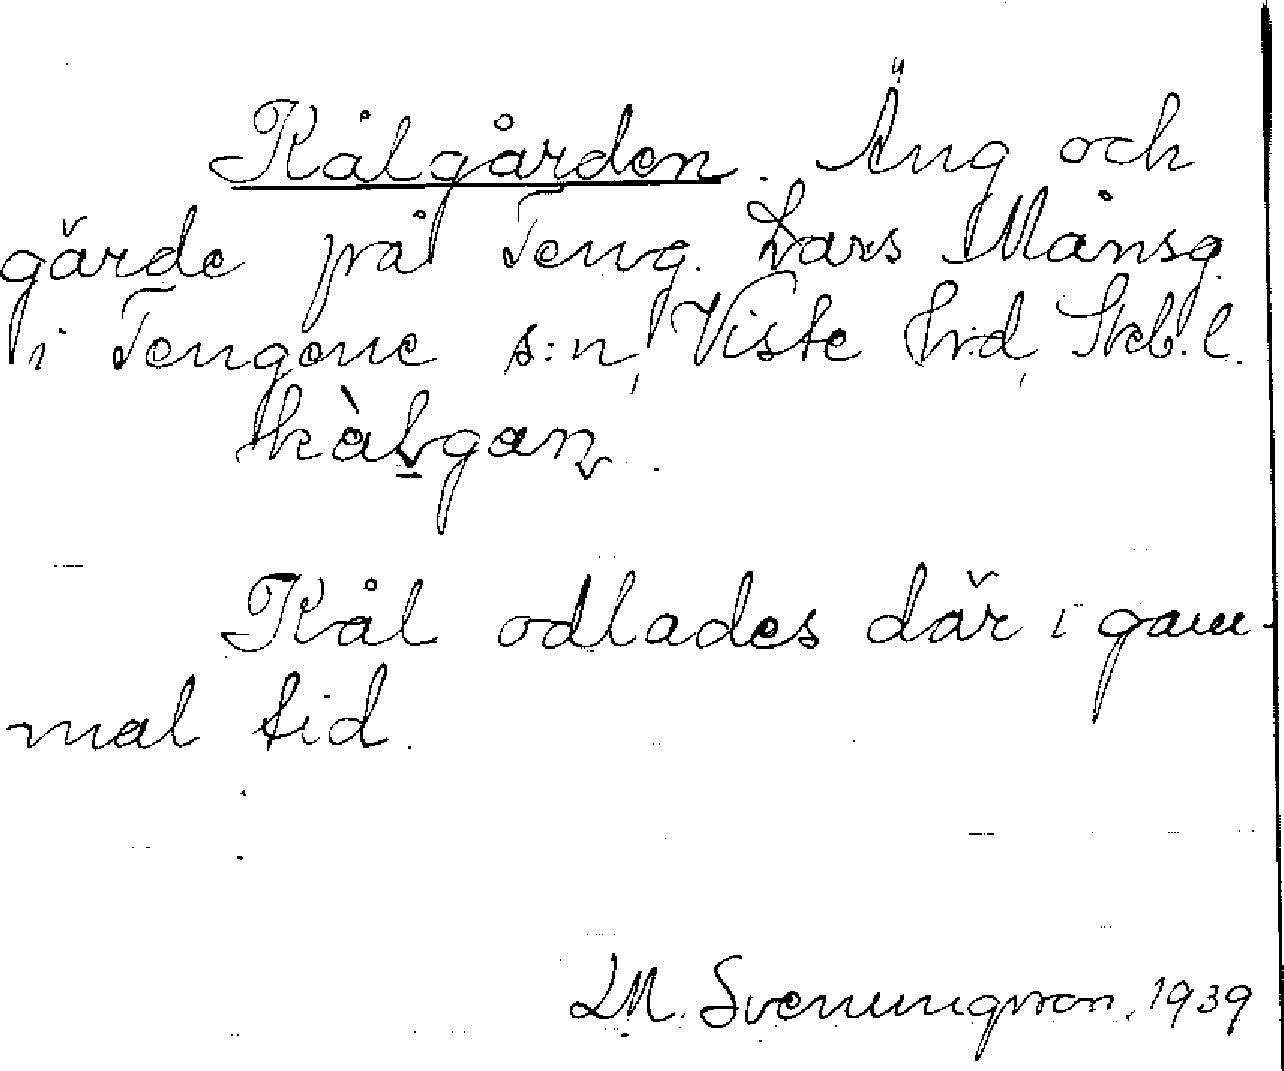 Kålgården. Äng och
gärde på Teng. Lars Månsg.
i Tengene s:n, Viste hrd, Skb. l.
kàlgan.
Kål odlades där i gam-
mal tid.
LM. Svenungsson, 1939